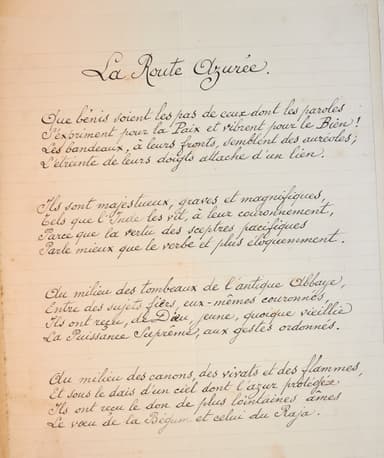 La Route Azurée.
Que bénis soient les pas de ceux dont les paroles
S'expriment pour la Paix et vibrent pour le Bien !
Les bandeaux, à leurs fronts, semblent des auréoles ;
L'étreinte de leurs doigts attache d'un lien.
Ils sont majestueux, graves et magnifiques,
Tels que l'Inde les vit, à leur couronnement,
Parce que la vertu des sceptres pacifiques
Parle mieux que le verbe et plus éloquemment.
Au milieu des tombeaux de l'antique Abbaye,
Entre des sujets fiers, eux-mêmes couronnés,
Ils ont reçu, de Dieu, jeune, quoique vieillie
La Puissance Suprême, aux gestes ordonnés.
Au milieu des canons, des vivats et des flammes,
Et sous le dais d'un ciel dont l'azur protégea
Ils ont reçu le don de plus lointaines âmes
Le vœu de la Bégum et celui du Raja.